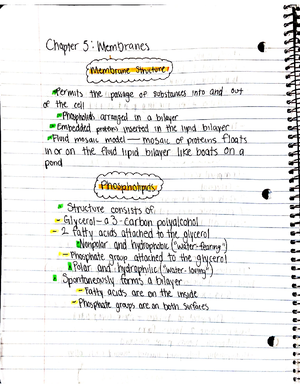 Chapter 5: Membranes
Membrane Structure
Permits the passage of substances into and out
of the cell
Phospholipids arranged in a bilayer
Embedded proteins inserted in the lipid bilayer
Fluid mosaic model - mosaic of proteins floats
in or on the fluid lipid bilayer like boats on a
pond
Phospholipids
Structure consists of
- Glycerol - a 3-carbon polyalcohol
- 2 fatty acids attached to the glycerol
Nonpolar and hydrophobic ("water-fearing")
- Phosphate group attached to the glycerol
Polar and hydrophilic ("water-loving")
Spontaneously forms a bilayer
- Fatty acids are on the inside
- Phosphate groups are on both surfaces